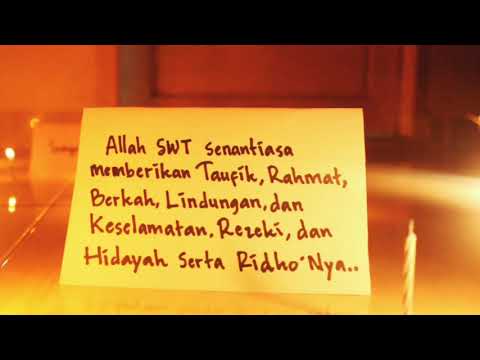 Allah SWT senantiasa
memberikan Taufik, Rahmat,
Berkah, Lindungan, dan
Keselamatan, Rezeki, dan
Hidayah Serta Ridho'Nya..